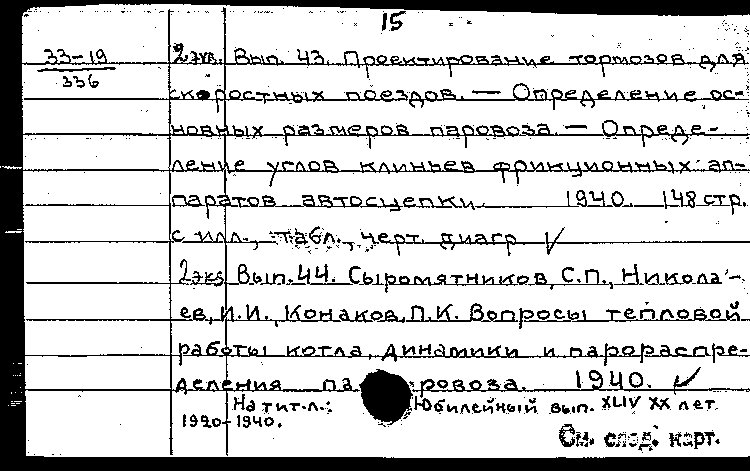 15
33-19
336
2 экз. Вып. 43. Проектирование тормозов для
скоростных поездов. — Определение ос-
новных размеров паровоза. — Опреде-
ление углов клиньев фрикционных ап-
паратов автосцепки. 1940. 148 стр.
с илл., табл., черт. диагр. √
2 экз. Вып. 44. Сыромятников, С.П., Никола-
ев, И.И., Конаков, П.К. Вопросы тепловой
работы котла, динамики и парораспре-
деления па ровоза. 1940. √
На тит.-л.: Юбилейный вып. XLIV XX лет
1920-1940.
См. след. карт.